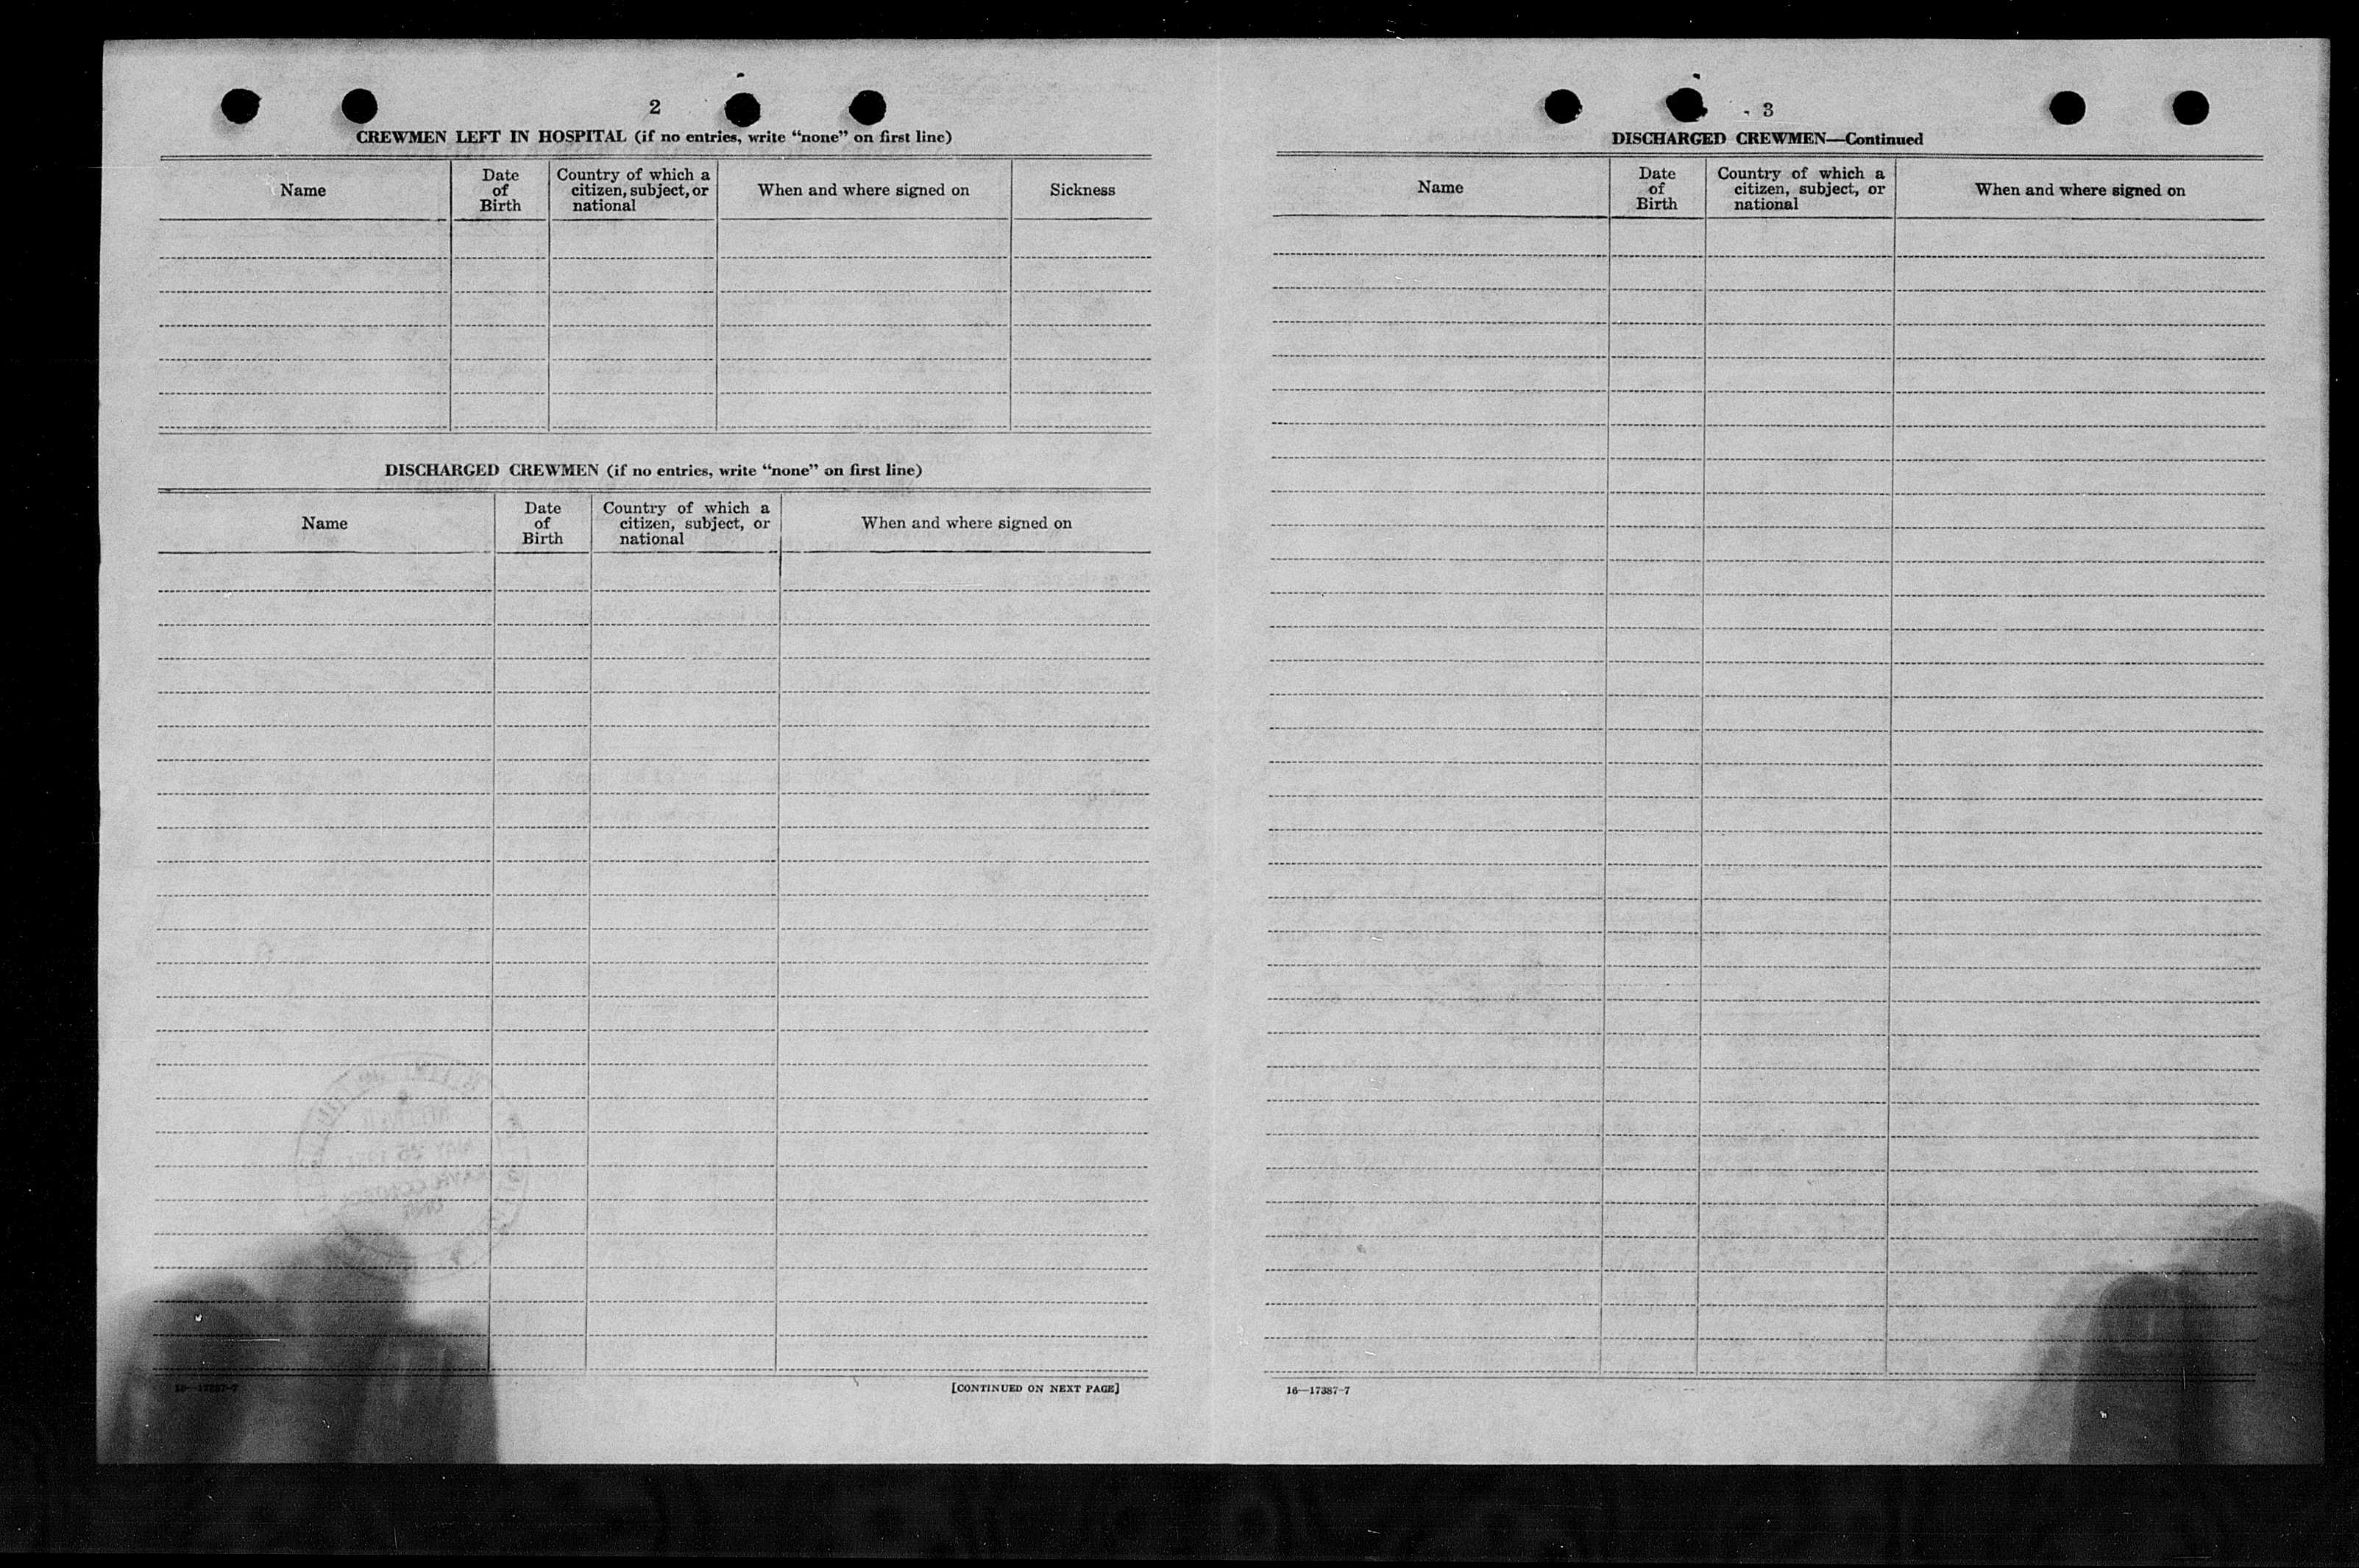 2
CREWMEN LEFT IN HOSPITAL (if no entries, write “none” on first line)
Name
Date
of
Birth
Country of which a
citizen, subject, or
national
When and where signed on
Sickness
DISCHARGED CREWMEN (if no entries, write “none” on first line)
Name
Date
of
Birth
Country of which a
citizen, subject, or
national
When and where signed on
16—17387-7
[CONTINUED ON NEXT PAGE]
3
DISCHARGED CREWMEN—Continued
Name
Date
of
Birth
Country of which a
citizen, subject, or
national
When and where signed on
16—17387-7